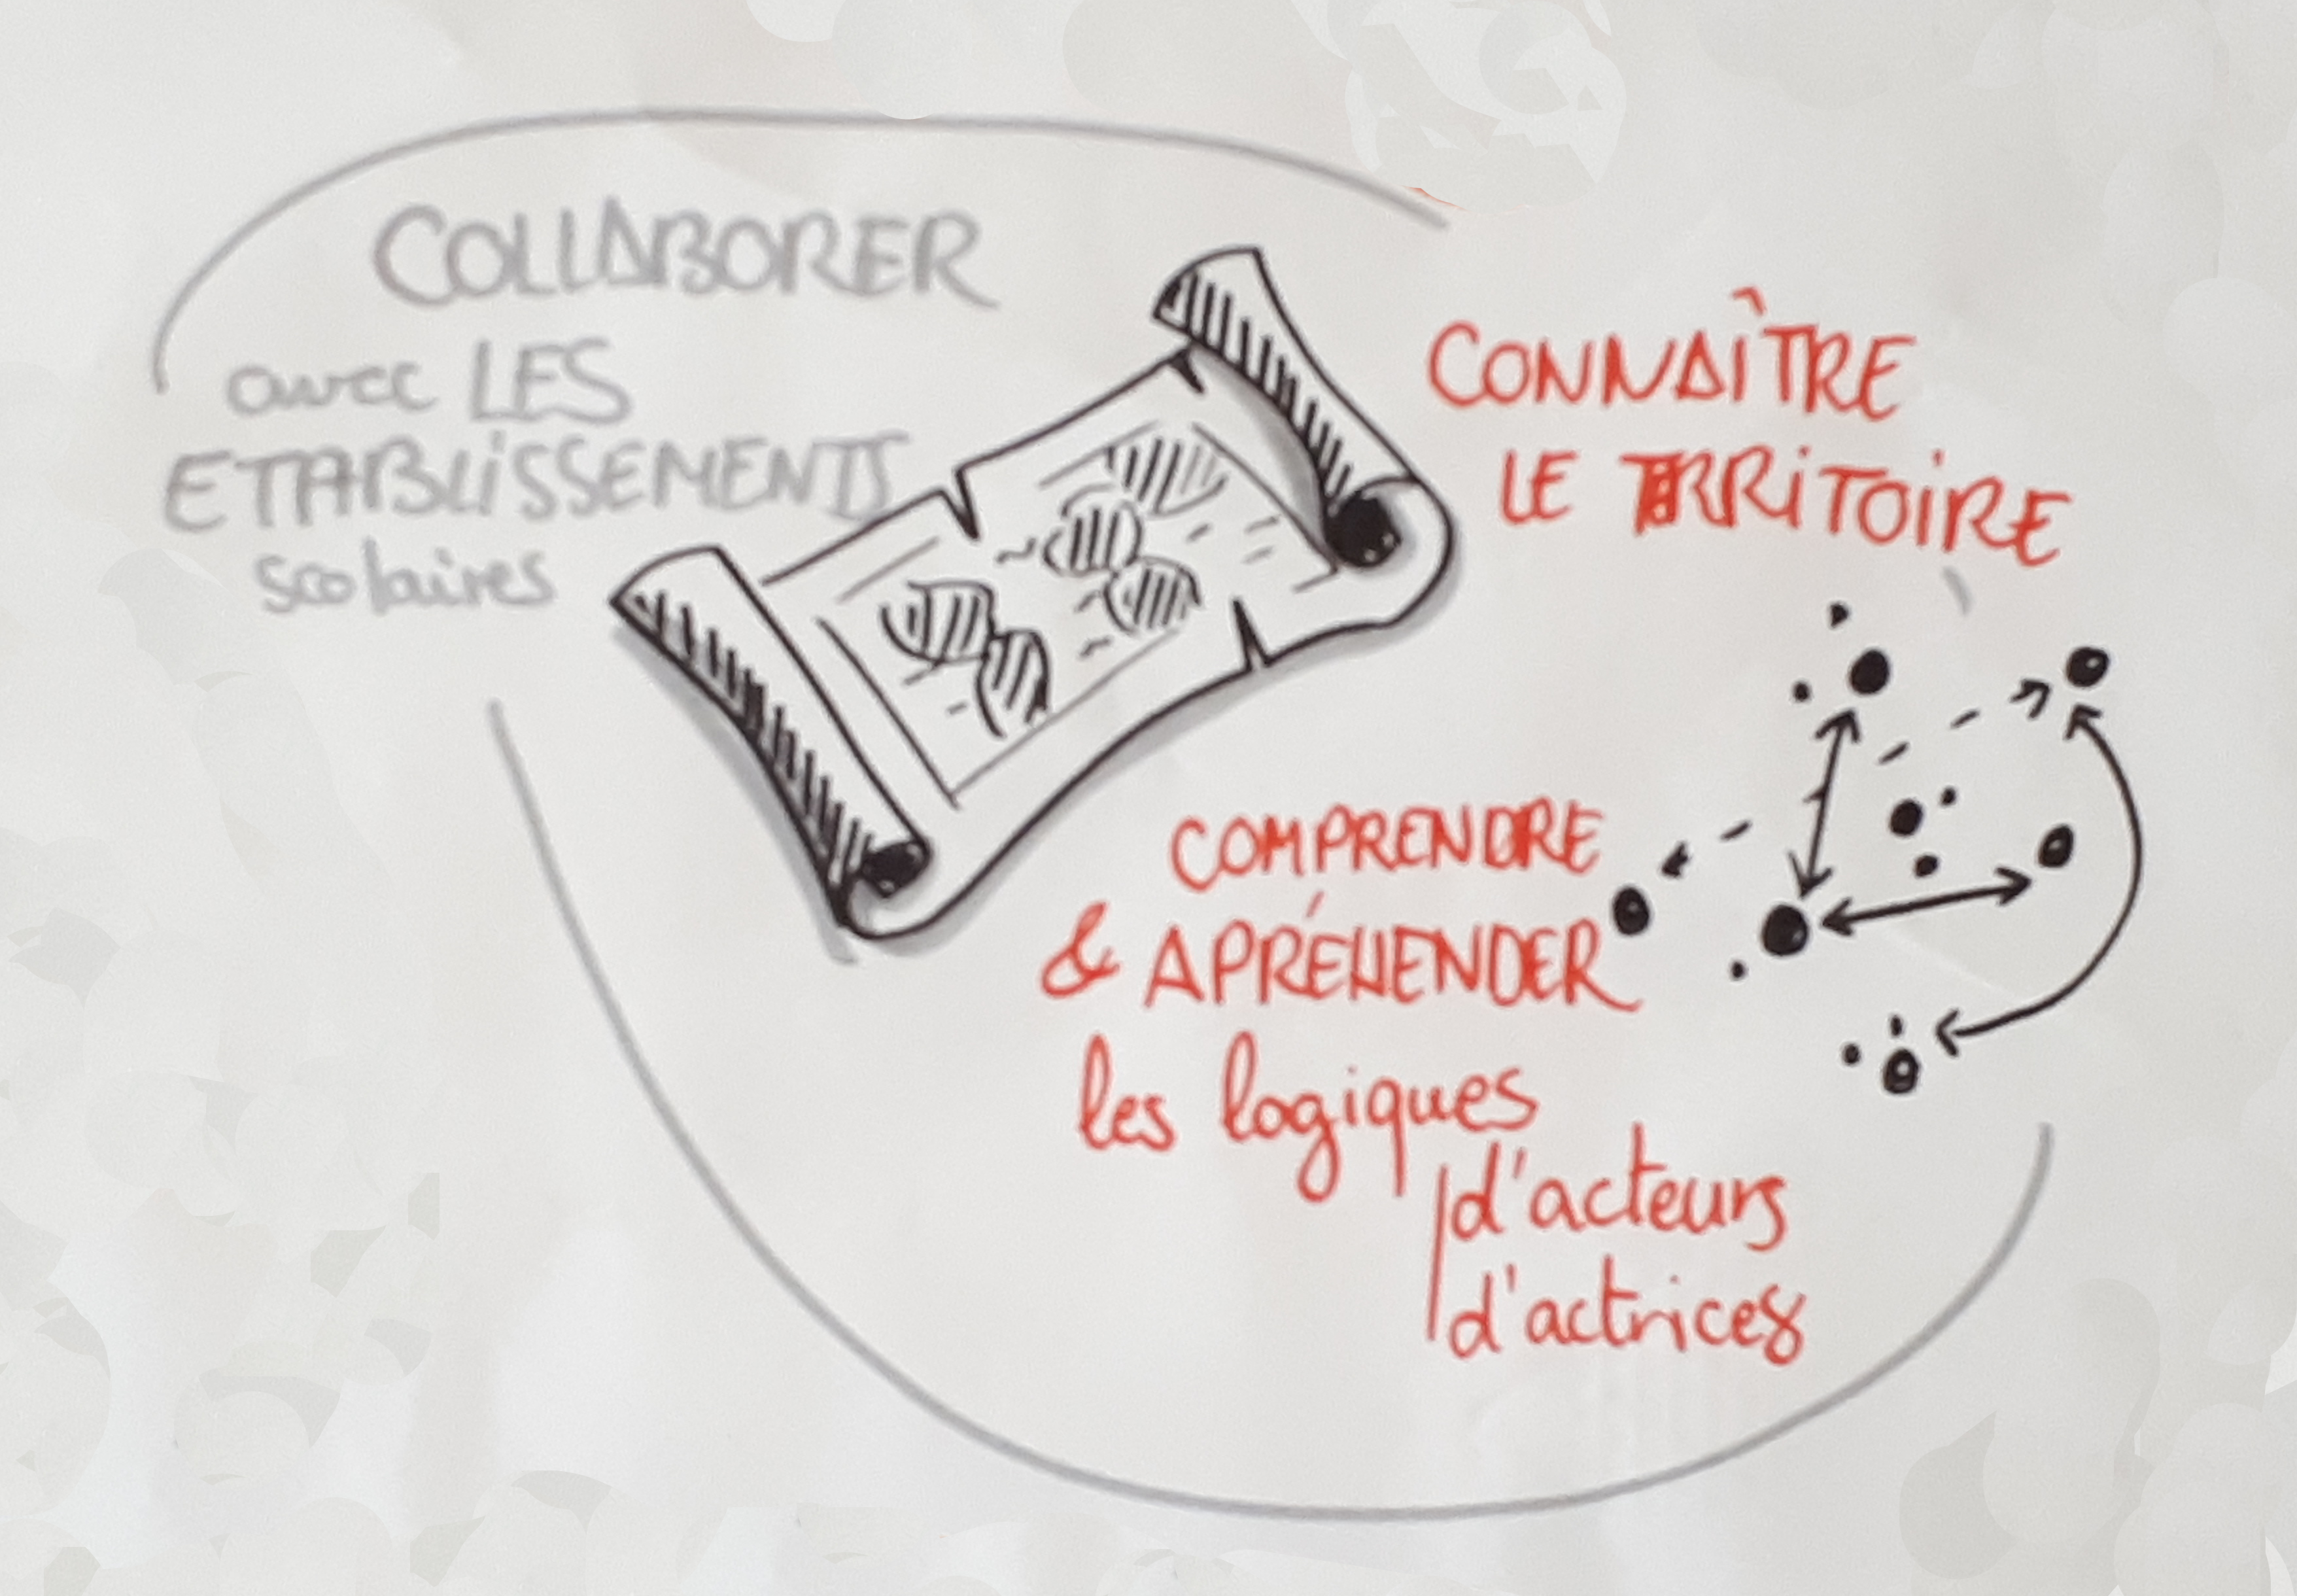 COLLABORER
avec LES
ETABLiSSEMENTS
scolaires
CONNAÎTRE
LE TERRiTOiRE
COMPRENDRE
& APRÉHENDER
les logiques
d'acteurs
d'actrices